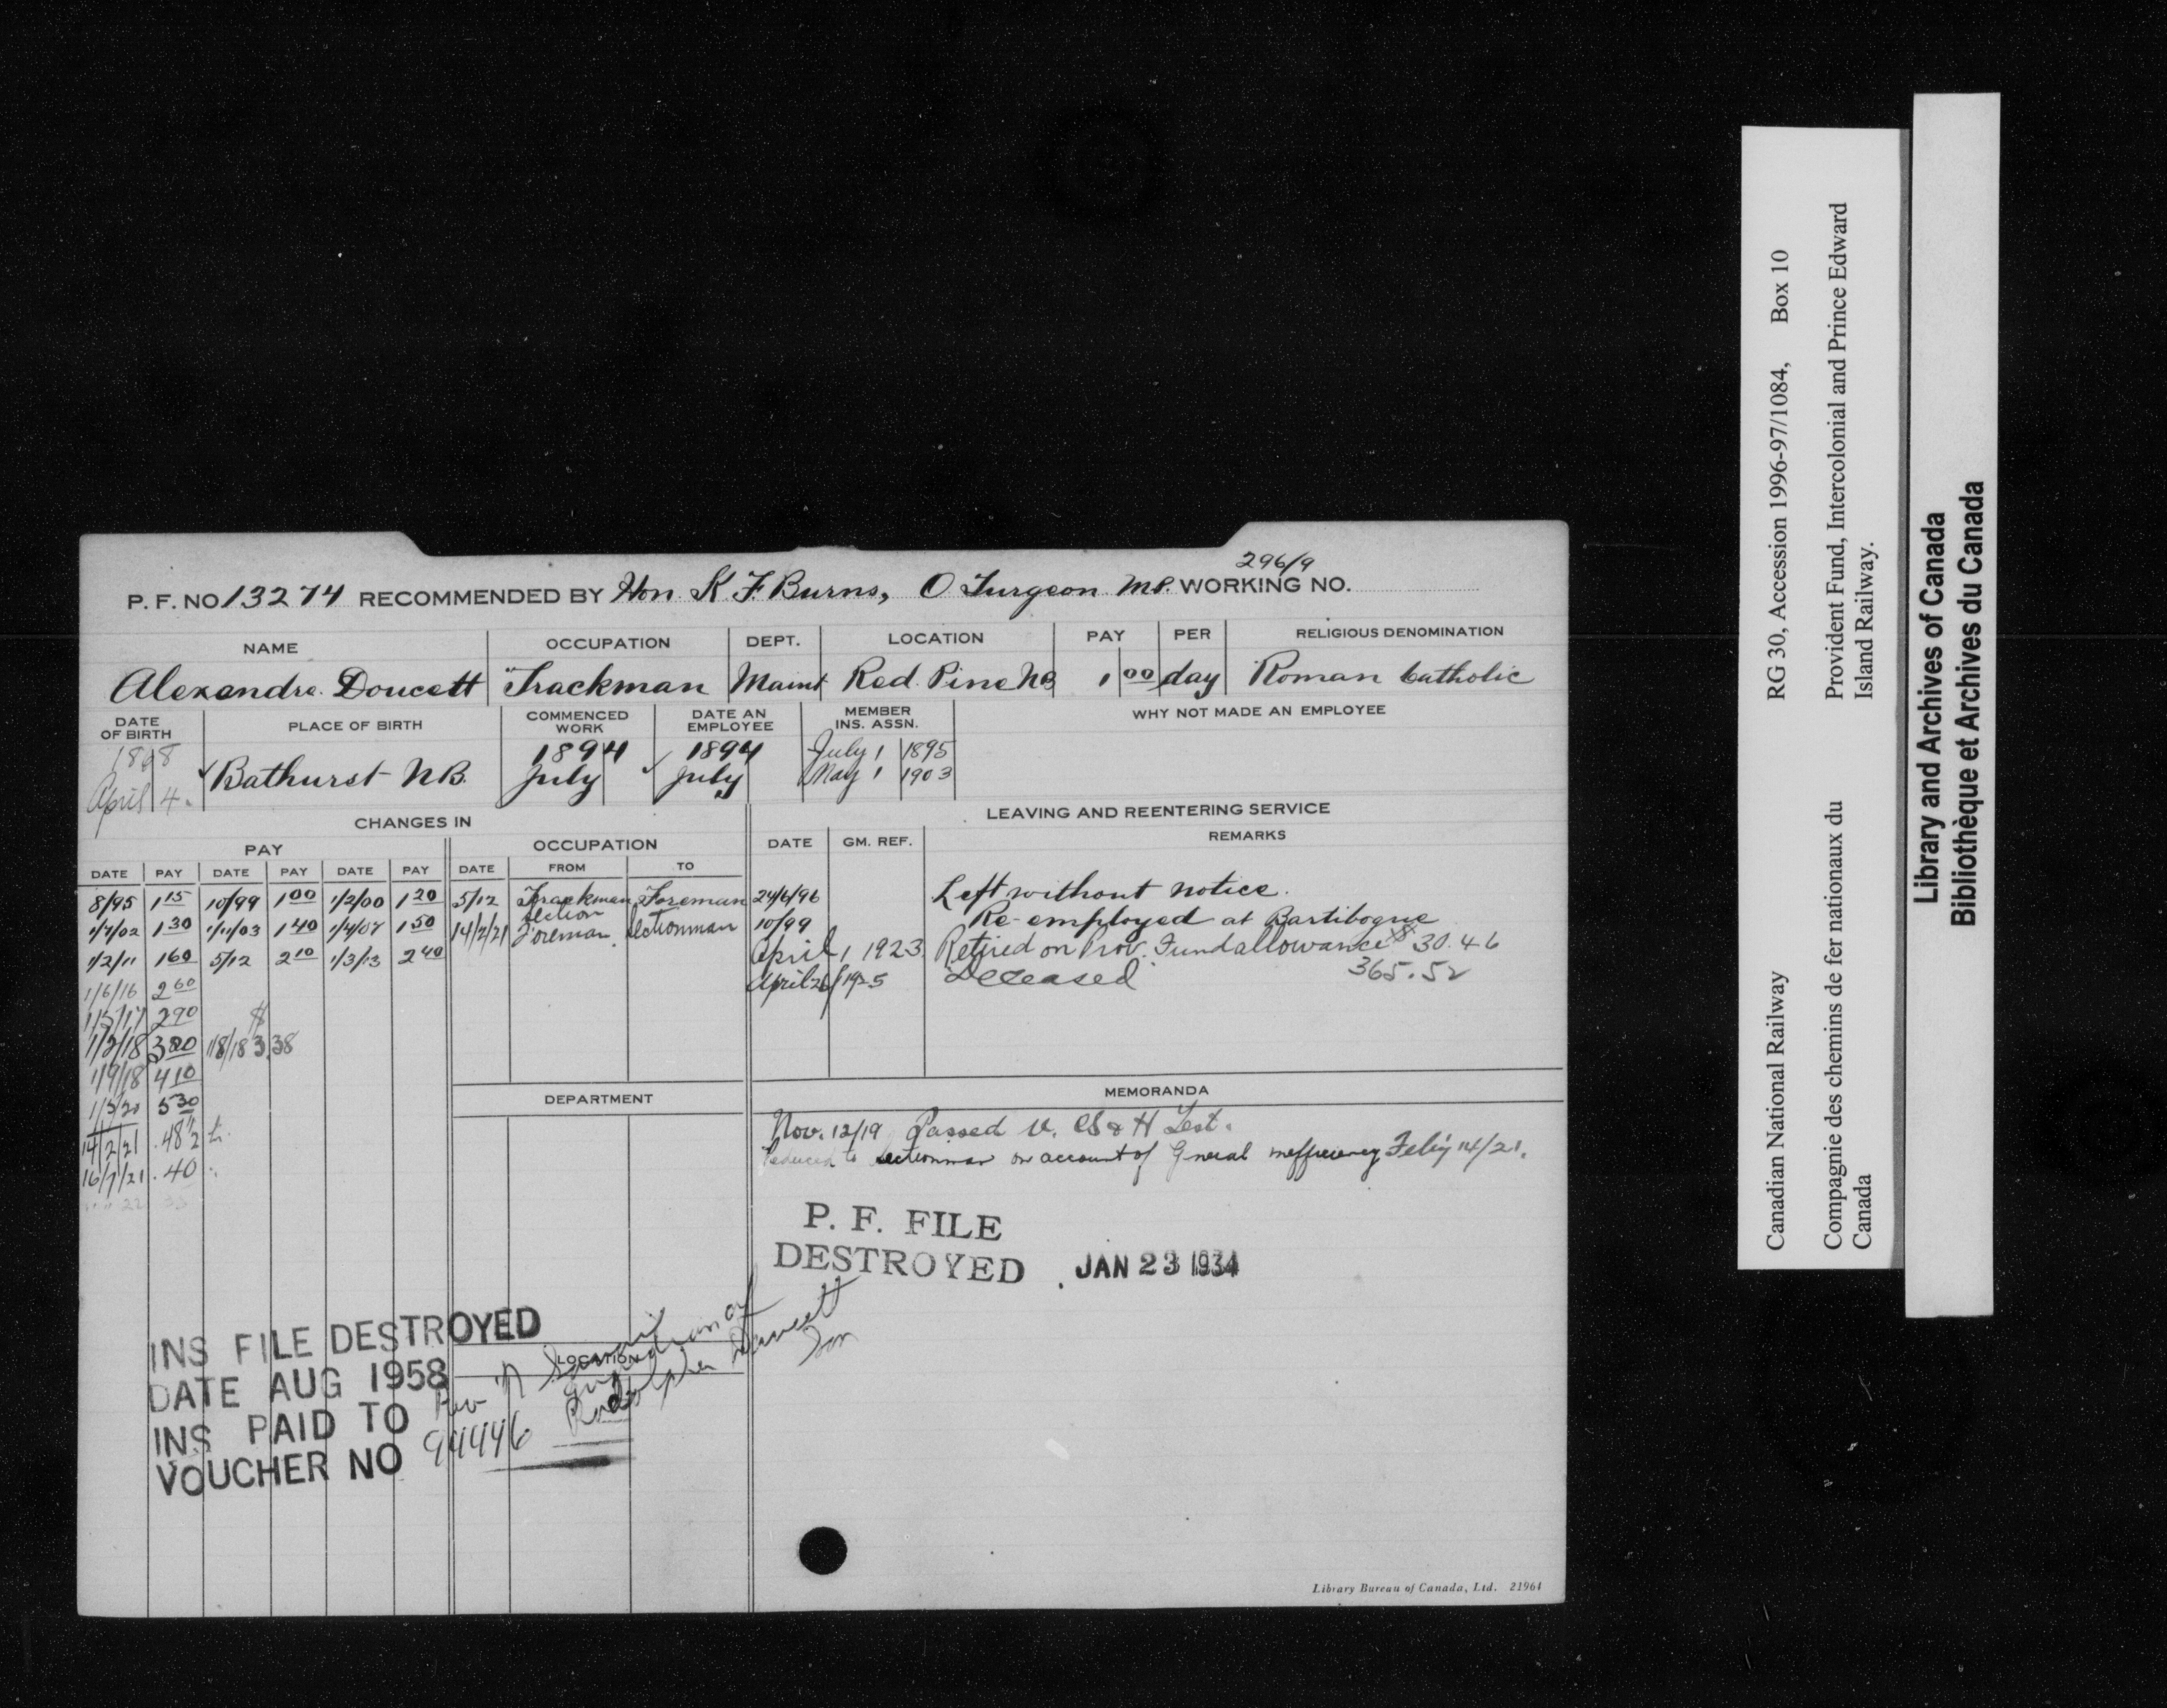 296/9
P. F. NO 13274 RECOMMENDED BY Hon K. F. Burns, O Turgeon MP. WORKING NO.
NAME OCCUPATION DEPT. LOCATION PAY PER RELIGIOUS DENOMINATION
Alexandre Doucett Trackman Maint Red Pine NB 1 00 day Roman Catholic
DATE OF BIRTH PLACE OF BIRTH COMMENCED WORK DATE AN EMPLOYEE MEMBER INS. ASSN. WHY NOT MADE AN EMPLOYEE
1868 1894 1894 July 1 1895
April 4. Bathurst NB. July July May 1 1903
CHANGES IN LEAVING AND REENTERING SERVICE
PAY OCCUPATION DATE GM. REF. REMARKS
DATE PAY DATE PAY DATE PAY DATE FROM TO
8/95 1 15 10/99 1 00 1/2/00 1 20 5/12 Trackman Foreman 24/6/96 Left without notice.
1/7/02 1 30 1/11/03 1 40 1/4/07 1 50 14/2/21 Section Foreman Sectionman 10/99 Re-employed at Bartibogue
1/2/11 1 60 5/12 2 10 1/3/13 2 40 April 1 1923 Retired on Prov. Fund allowance $ 30.46
1/6/16 2 60 April 26/1925 Deceased 365.52
1/5/17 2 90 $
1/2/18 3 00 1/8/18 3.38
1/9/18 4 10
1/5/20 5 30
14/2/21 .48 1/2
16/7/21 .40
DEPARTMENT MEMORANDA
Nov. 12/19 Passed V. CS & H Test.
Reduced to Sectionman on account of General inefficiency Feb'y 14/21.
P. F. FILE
DESTROYED JAN 23 1934
LOCATION
INS FILE DESTROYED
DATE AUG 1958
INS PAID TO Rev
guardian of
Rodolphe Doucett
Son
VOUCHER NO 94446
Library Bureau of Canada, Ltd. 21964
Canadian National Railway RG 30, Accession 1996-97/1084, Box 10
Compagnie des chemins de fer nationaux du Canada
Provident Fund, Intercolonial and Prince Edward Island Railway.
Library and Archives of Canada
Bibliothèque et Archives du Canada